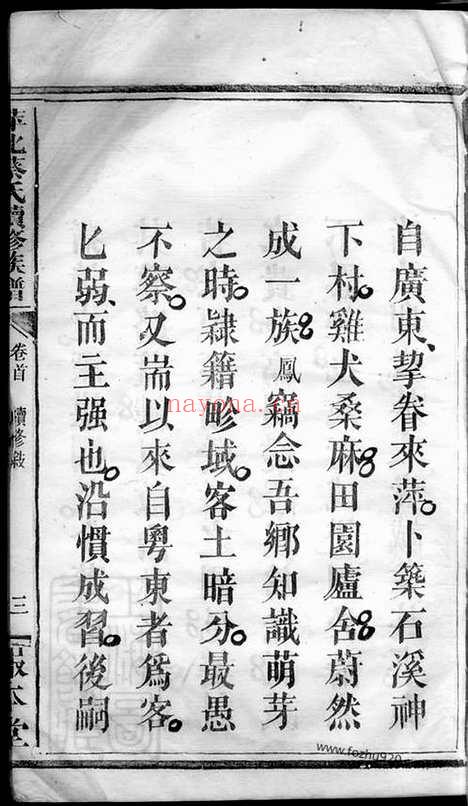 自廣東、挈眷來萍。卜築石溪神
下村。雞犬桑麻。田園廬舍。蔚然
成一族。鳳竊念吾鄉知識萌芽
之時。隷籍畛域。客土暗分。最愚
不察。又耑以來自粵東者爲客。
匕弱、而主强也。沿慣成習。後嗣
萍北蔡氏續修族譜
卷首 續修敘
三
敬本堂
nayona.cn
www.fozhu920.com